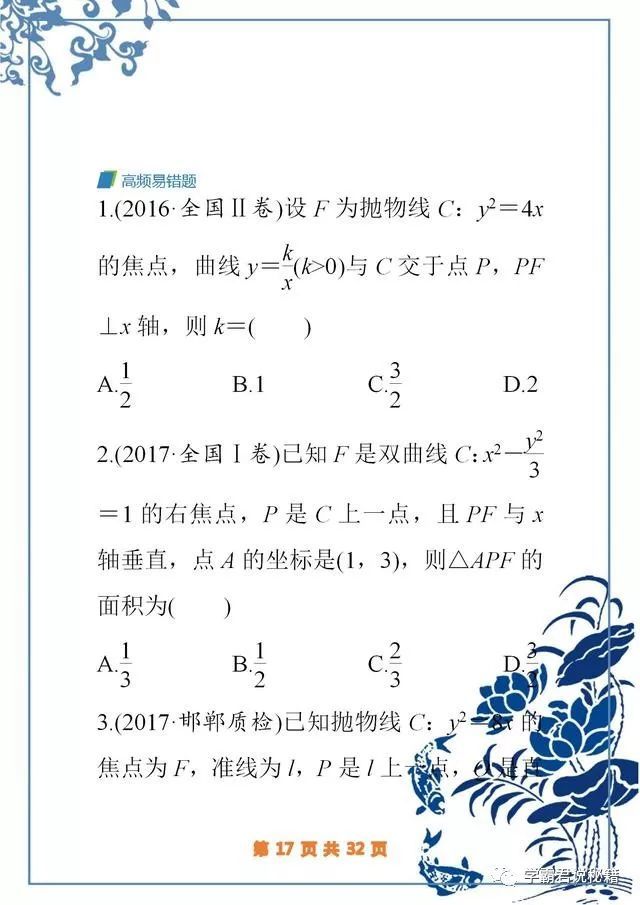 高频易错题
1.(2016·全国Ⅱ卷)设F为抛物线C：y²=4x
的焦点，曲线y=k/x(k>0)与C交于点P，PF
⊥x轴，则k=(　　)
A.1/2　B.1　C.3/2　D.2
2.(2017·全国Ⅰ卷)已知F是双曲线C:x²-y²/3
=1的右焦点，P是C上一点，且PF与x
轴垂直，点A的坐标是(1，3)，则△APF的
面积为(　　)
A.1/3　B.1/2　C.2/3　D.3/2
3.(2017·邯郸质检)已知抛物线C：y²=8x的
焦点为F，准线为l，P是l上一点，Q是直
第 17 页 共 32 页
学霸君说秘籍